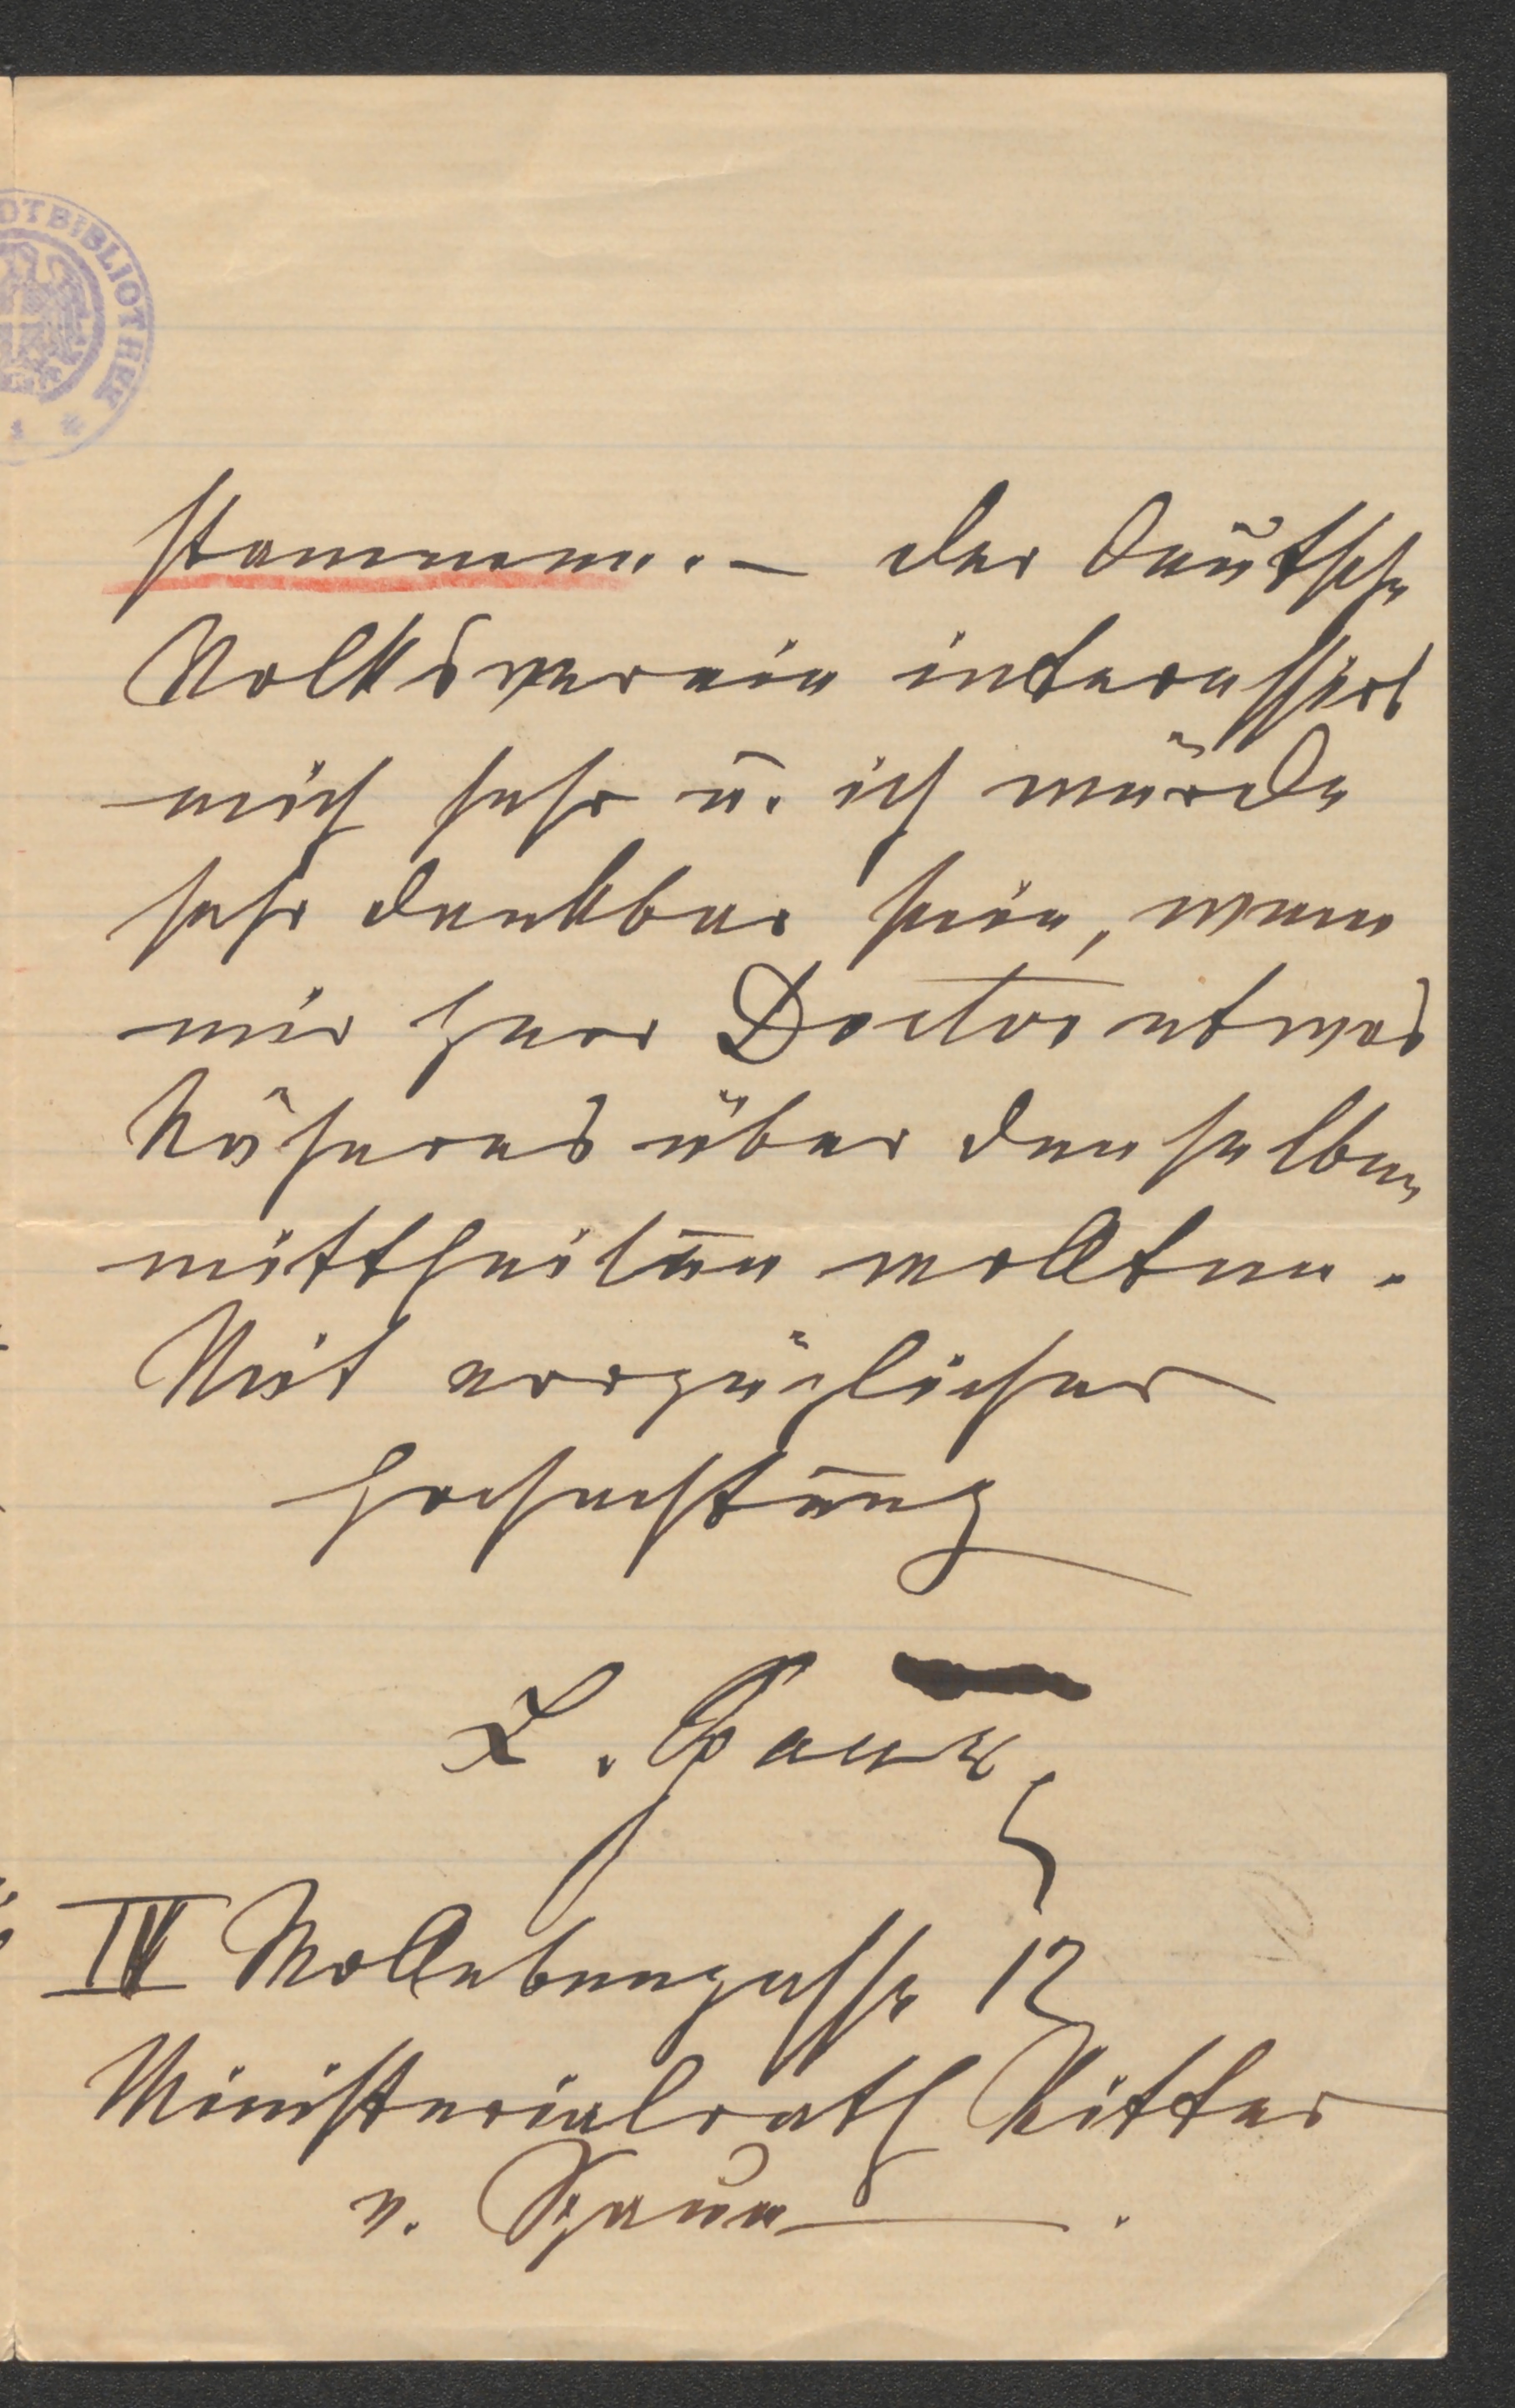 DTBIBLIOTHEK
stammen. — Der deutsche
Volksverein interessirt
mich sehr u. ich würde
sehr dankbar sein, wenn
mir Herr Doctor etwas
Näheres über denselben
mittheilen wollten.
Mit vorzüglicher
Hochachtung
L.
IV Wollebengasse 12
Ministerialrath Ritter
v. Spaun.